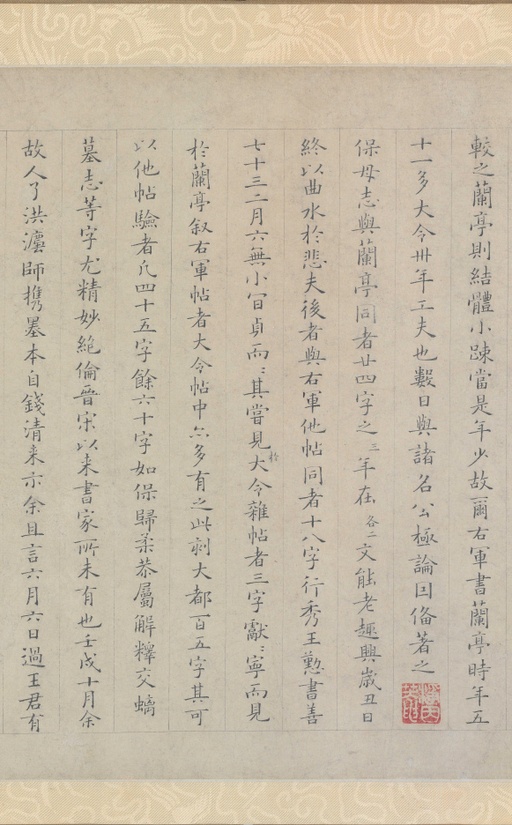 較之蘭亭則結體小踈當是年少故爾右軍書蘭亭時年五
十一多大令卅年工夫也數日與諸名公極論因偹著之
保母志與蘭亭同者廿四字之三年在各二文能老趣興歲丑日
終以曲水於悲夫後者與右軍他帖同者十八字行秀王懃書善
七十三二月六無小冒貞而〻其嘗見於大令雜帖者三字獻〻寧而見
於蘭亭叙右軍帖者大令帖中亦多有之此刻大都百五字其可
以他帖驗者凡四十五字餘六十字如保歸柔恭屬解釋交螭
墓志等字尤精妙絶倫晉宋以來書家所未有也壬戌十月余
故人了洪灋師攜墨本自錢清来示余且言六月六日過王君有